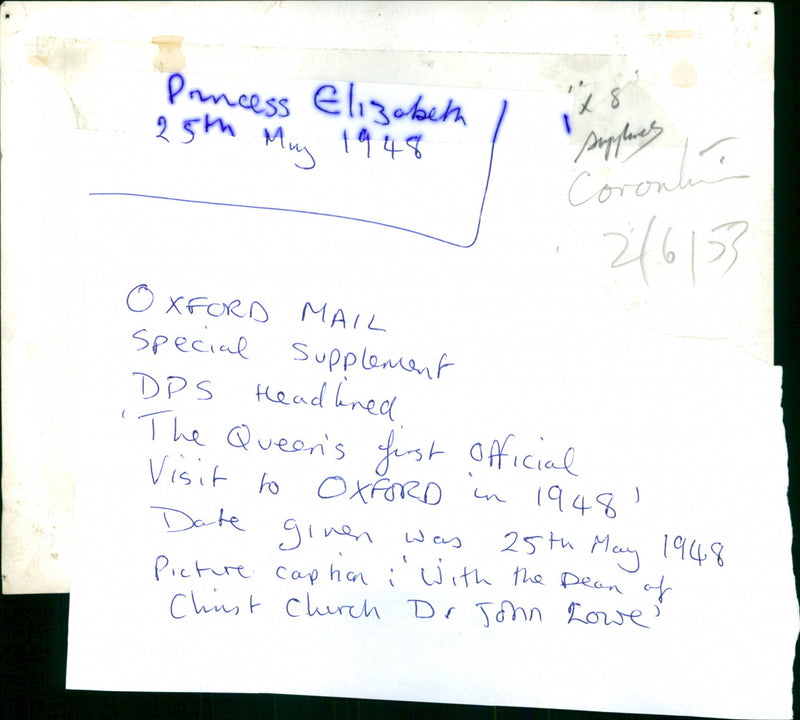 Princess Elizabeth
25th May 1948
"x 8"
Coronation
2/6/53
OXFORD MAIL
Special Supplement
DPS Headlined
'The Queen's first Official
Visit to OXFORD in 1948'
Date given was 25th May 1948
Picture caption : 'With the Dean of
Christ Church Dr John Lowe'